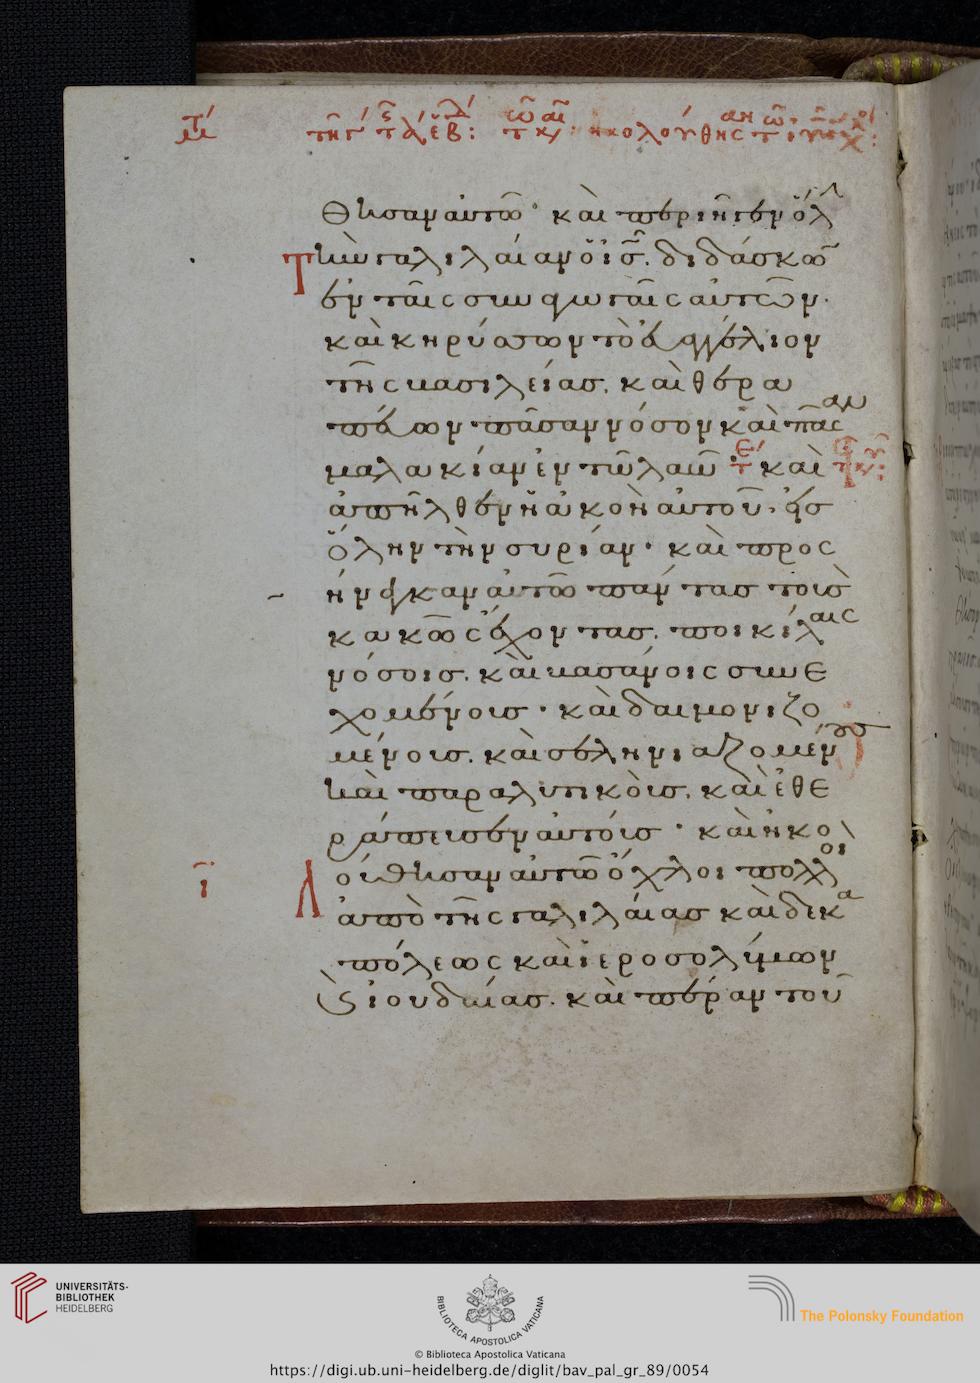 θησαν αὐτῶ· καὶ περιῆγεν ὅλ
τὴν γαλιλαίαν ὁ ις. διδάσκων
ἐν ταῖς συναγωγαῖς αὐτῶν·
καὶ κηρύσσων τὸ εὐαγγέλιον
τῆς βασιλείας. καὶ θερα
πεύων πᾶσαν νόσον καὶ πᾶσαν
μαλακίαν ἐν τῶ λαῶ καὶ
ἀπῆλθεν ἡ ἀκοὴ αὐτοῦ. εἰς
ὅλην τὴν συρίαν· καὶ προς
ήνεγκαν αὐτῶ πάντας τοὺς
κακῶς ἔχοντας. ποικίλαις
νόσοις. καὶ βασάνοις συνε
χομένους· καὶ δαιμονιζο
μένους. καὶ σεληνιαζομένους
καὶ παραλυτικοὺς. καὶ ἐθε
ράπευσεν αὐτοὺς· καὶ ἠκο
λούθησαν αὐτῶ ὄχλοι πολλοὶ
ἀπὸ τῆς γαλιλαίας καὶ δεκα
πόλεως καὶ ἱεροσολύμων
καὶ ἰουδαίας. καὶ πέραν τοῦ
UNIVERSITÄTS-
BIBLIOTHEK
HEIDELBERG
BIBLIOTECA APOSTOLICA VATICANA
The Polonsky Foundation
© Biblioteca Apostolica Vaticana
https://digi.ub.uni-heidelberg.de/diglit/bav_pal_gr_89/0054